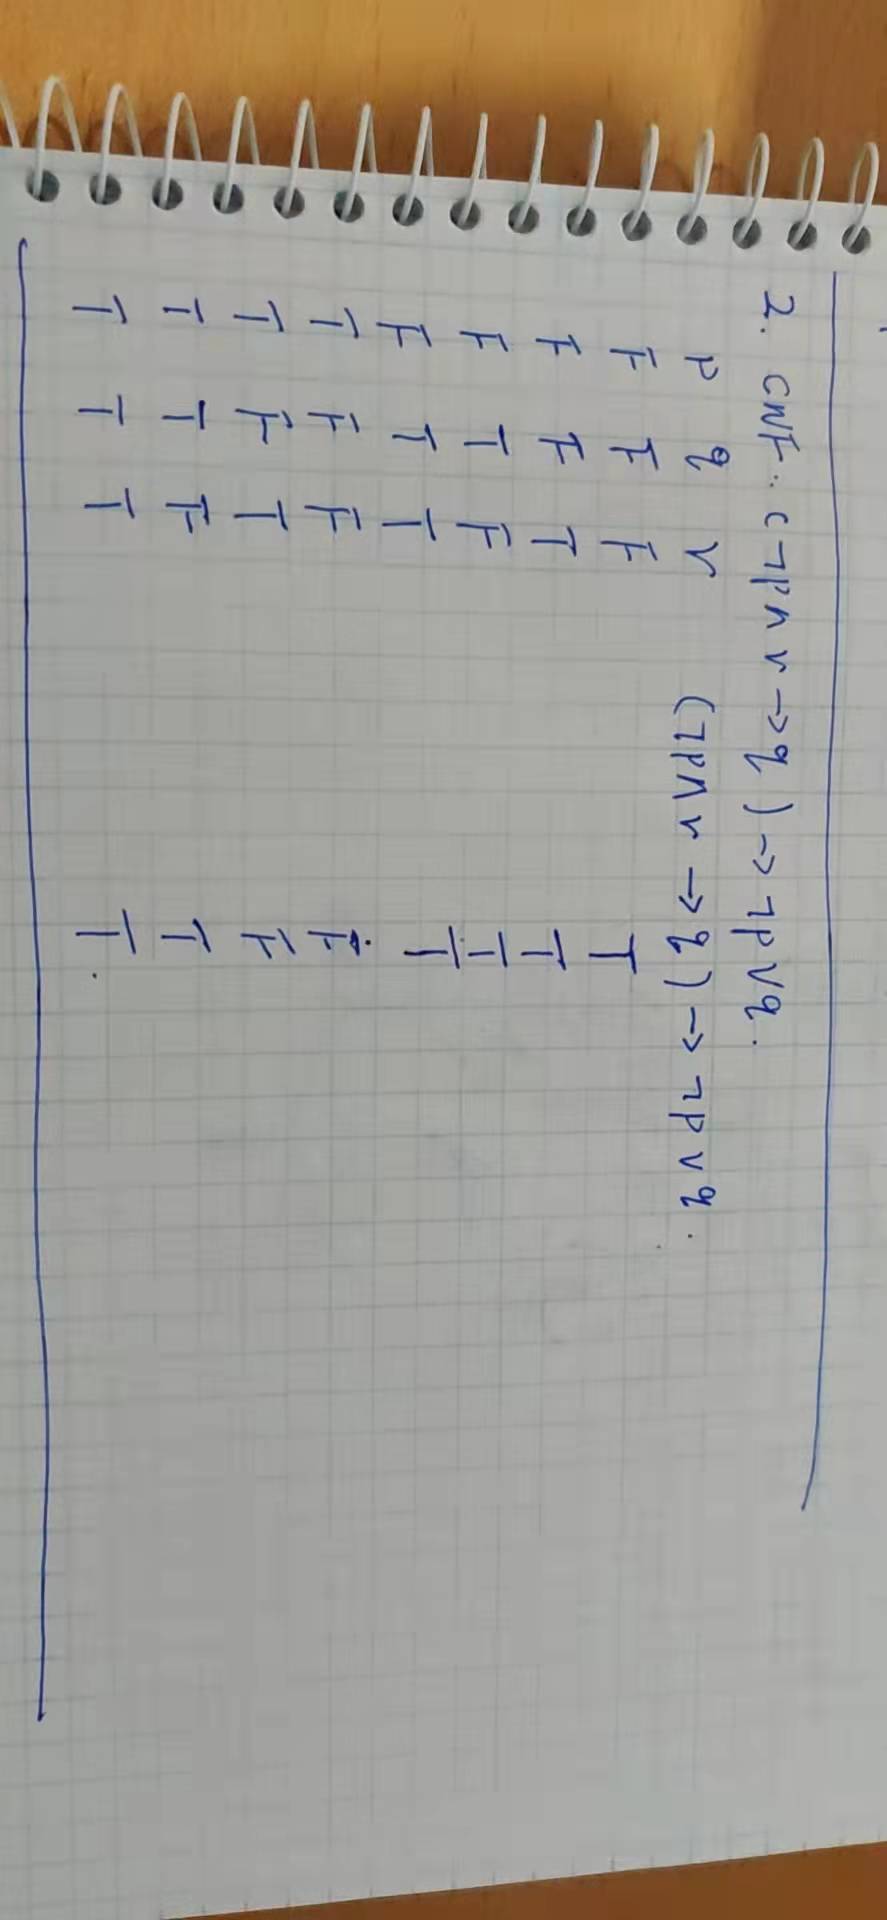 2. CNF: (¬p∧r→q)→¬p∨q.
p q r (¬p∧r→q)→¬p∨q.
F F F T
F F T T
F T F T
F T T T
T F F F
T F T F
T T F T
T T T T